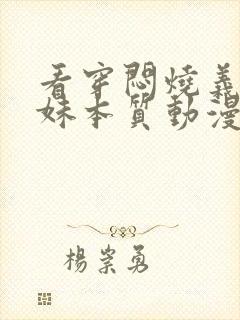 看穿悶燒義
妹本質動漫
楊崇勇